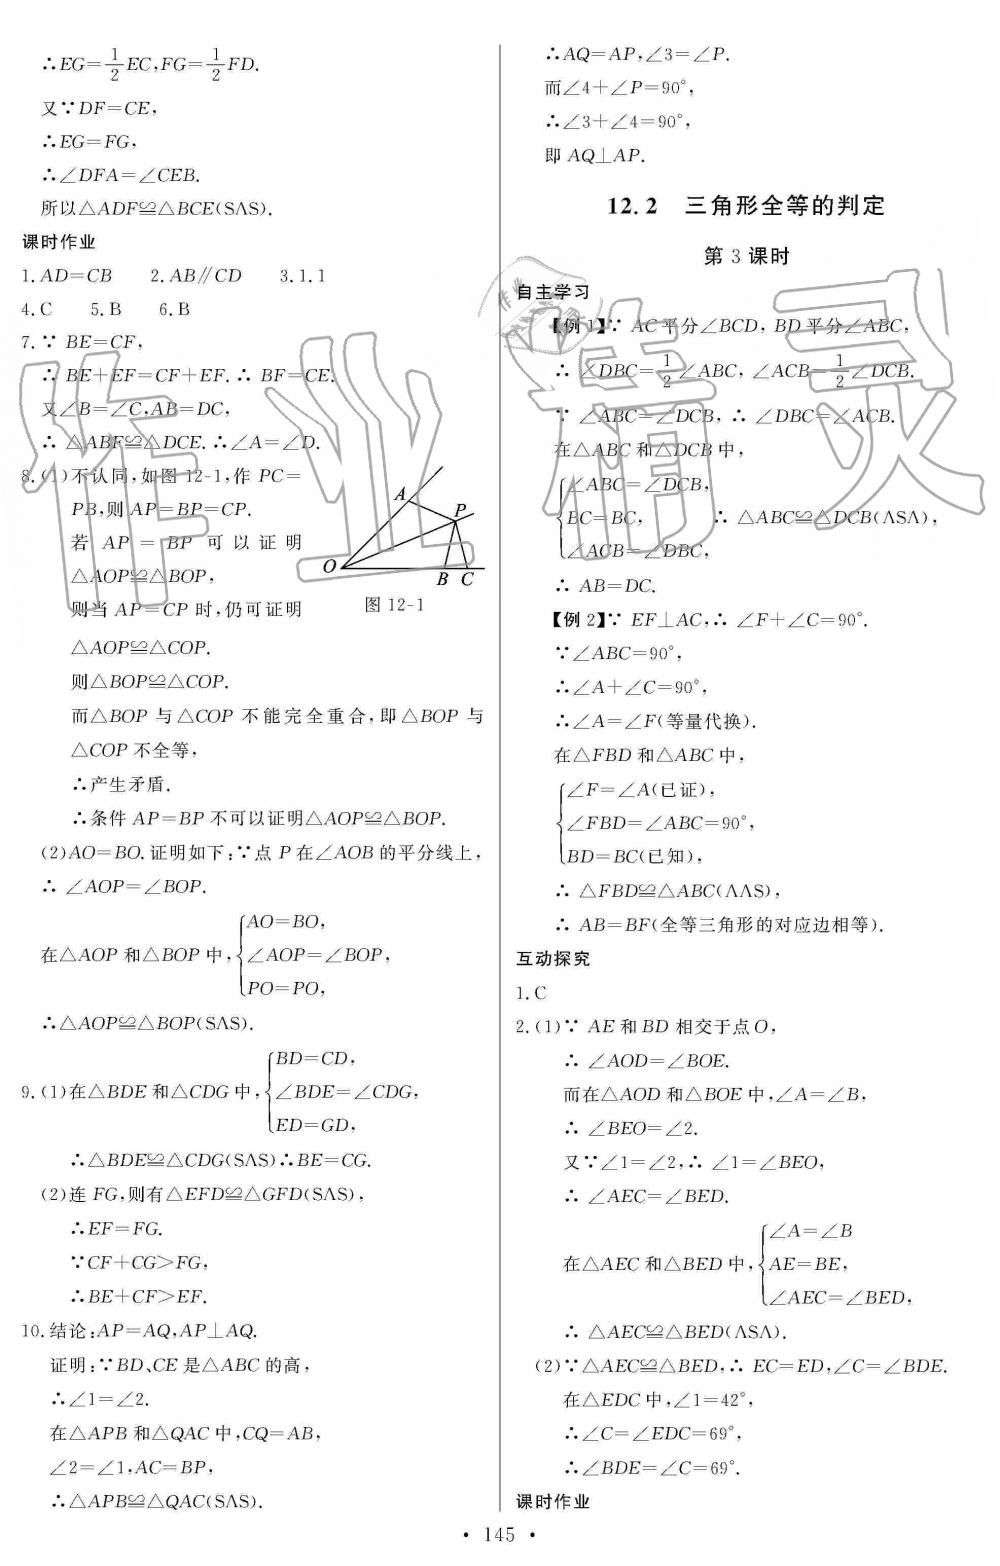 ∴EG=1/2EC,FG=1/2FD.
又∵DF=CE,
∴EG=FG,
∴∠DFA=∠CEB.
所以△ADF≌△BCE(SAS).
课时作业
1.AD=CB 2.AB∥CD 3.1.1
4.C 5.B 6.B
7.∵ BE=CF,
∴ BE+EF=CF+EF.∴ BF=CE.
又∠B=∠C,AB=DC,
∴ △ABF≌△DCE.∴∠A=∠D.
8.(1)不认同,如图 12-1,作 PC=
PB,则 AP=BP=CP.
若 AP=BP 可以证明
△AOP≌△BOP,
则当 AP=CP 时,仍可证明
△AOP≌△COP.
则△BOP≌△COP.
A
P
O
B C
图 12-1
而△BOP 与△COP 不能完全重合,即△BOP 与
△COP 不全等,
∴产生矛盾.
∴条件 AP=BP 不可以证明△AOP≌△BOP.
(2)AO=BO.证明如下:∵点 P 在∠AOB 的平分线上,
∴ ∠AOP=∠BOP.
AO=BO,
在△AOP 和△BOP 中,∠AOP=∠BOP,
PO=PO,
∴△AOP≌△BOP(SAS).
BD=CD,
9.(1)在△BDE 和△CDG 中,∠BDE=∠CDG,
ED=GD,
∴△BDE≌△CDG(SAS)∴BE=CG.
(2)连 FG,则有△EFD≌△GFD(SAS),
∴EF=FG.
∵CF+CG>FG,
∴BE+CF>EF.
10.结论:AP=AQ,AP⊥AQ.
证明:∵BD、CE 是△ABC 的高,
∴∠1=∠2.
在△APB 和△QAC 中,CQ=AB,
∠2=∠1,AC=BP,
∴△APB≌△QAC(SAS).
∴AQ=AP,∠3=∠P.
而∠4+∠P=90°,
∴∠3+∠4=90°,
即 AQ⊥AP.
12.2 三角形全等的判定
第 3 课时
自主学习
【例 1】∵ AC 平分∠BCD, BD 平分∠ABC,
∴ ∠DBC=1/2∠ABC, ∠ACB=1/2∠DCB.
∵ ∠ABC=∠DCB,∴ ∠DBC=∠ACB.
在△ABC 和△DCB 中,
∠ABC=∠DCB,
BC=BC, ∴ △ABC≌△DCB(ASA),
∠ACB=∠DBC,
∴ AB=DC.
【例 2】∵ EF⊥AC,∴ ∠F+∠C=90°.
∵∠ABC=90°,
∴∠A+∠C=90°,
∴∠A=∠F(等量代换).
在△FBD 和△ABC 中,
∠F=∠A(已证),
∠FBD=∠ABC=90°,
BD=BC(已知),
∴ △FBD≌△ABC(AAS),
∴ AB=BF(全等三角形的对应边相等).
互动探究
1.C
2.(1)∵ AE 和 BD 相交于点 O,
∴ ∠AOD=∠BOE.
而在△AOD 和△BOE 中,∠A=∠B,
∴ ∠BEO=∠2.
又∵∠1=∠2,∴ ∠1=∠BEO,
∴ ∠AEC=∠BED.
∠A=∠B
在△AEC 和△BED 中,AE=BE,
∠AEC=∠BED,
∴ △AEC≌△BED(ASA).
(2)∵△AEC≌△BED,∴ EC=ED,∠C=∠BDE.
在△EDC 中,∠1=42°,
∴∠C=∠EDC=69°,
∴∠BDE=∠C=69°.
课时作业
• 145 •
作业精灵